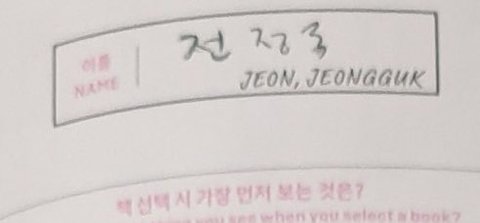 이름
NAME
전 정국
JEON, JEONGGUK
책 선택 시 가장 먼저 보는 것은?
you see when you select a book?